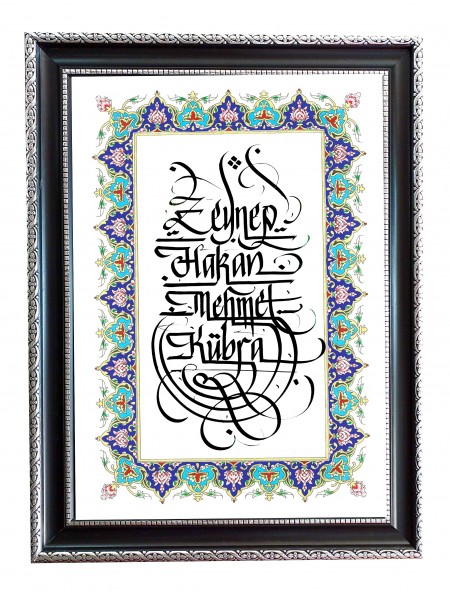 Zeynep
Hakan
Mehmet
Kübra